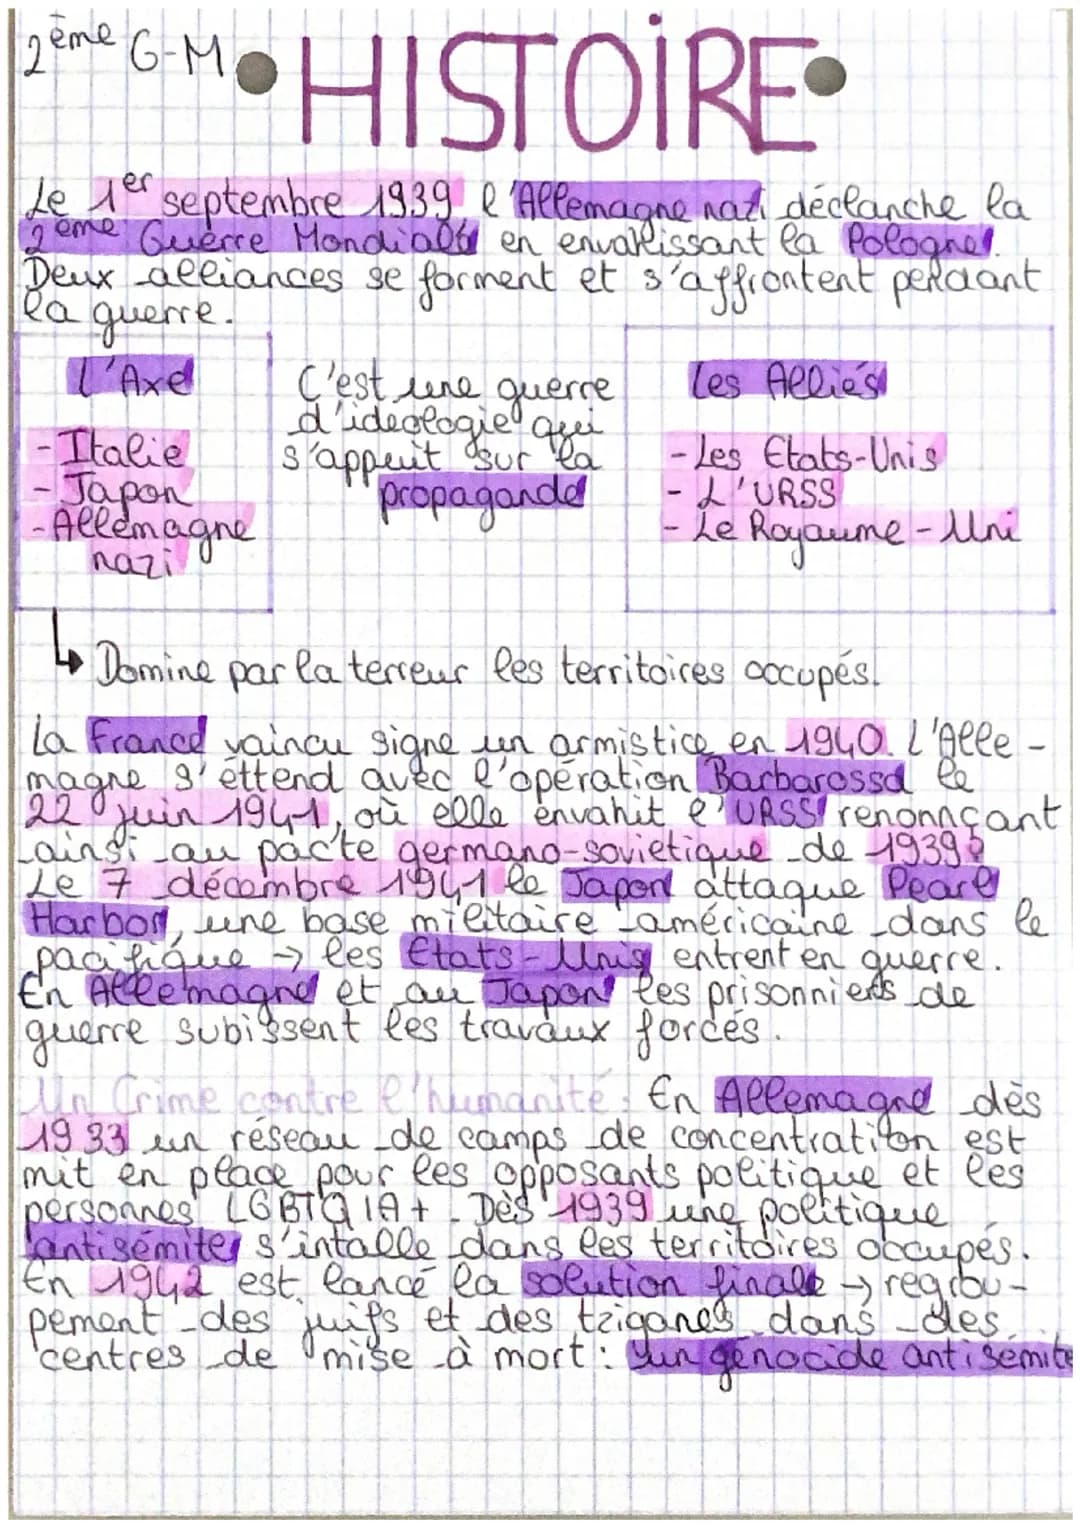 2ème G-M • HISTOIRE •
Le 1er septembre 1939 l'Allemagne nazi déclanche la
2ème Guerre Mondiale en envahissant la Pologne.
Deux alliances se forment et s'affrontent pendant
la guerre.
L'Axe
- Italie
- Japon
- Allemagne
nazi
C'est une guerre
d'ideologie qui
s'appuit sur la
propagande
Les Alliés
- Les Etats-Unis
- L'URSS
- Le Royaume-Uni
↳ Domine par la terreur les territoires occupés.
La France vaincu signe un armistice en 1940. L'Alle-
magne s'éttend avec l'opération Barbarossa le
22 juin 1941, où elle envahit l'URSS renonnçant
ainsi au pacte germano-sovietique de 1939
Le 7 décembre 1941 le Japon attaque Pearl
Harbor, une base militaire américaine dans le
pacifique → les Etats-Unis entrent en guerre.
En Allemagne et au Japon les prisonniers de
guerre subissent les travaux forcés.
Un Crime contre l'humanité: En Allemagne dès
1933 un réseau de camps de concentration est
mit en place pour les opposants politique et les
personnes LGBTQIA+. Dès 1939 une politique
antisémite s'intalle dans les territoires occupés.
En 1942 est lancé la solution finale → regrou-
pement des juifs et des tziganes dans des
centres de mise à mort: un génocide antisémite